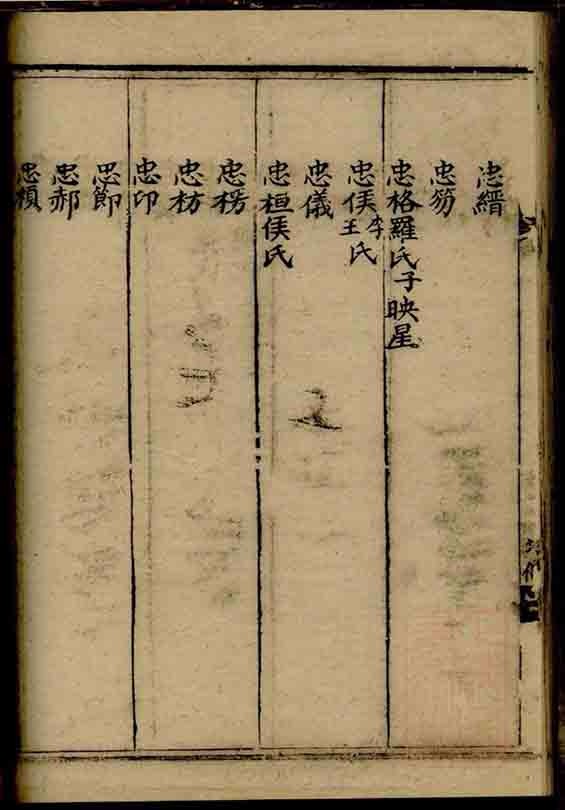 忠縉
忠笏
忠格羅氏子映星
忠侯李王氏
忠儀
忠桓侯氏
忠楞
忠枋
忠印
忠節
忠郝
忠楨